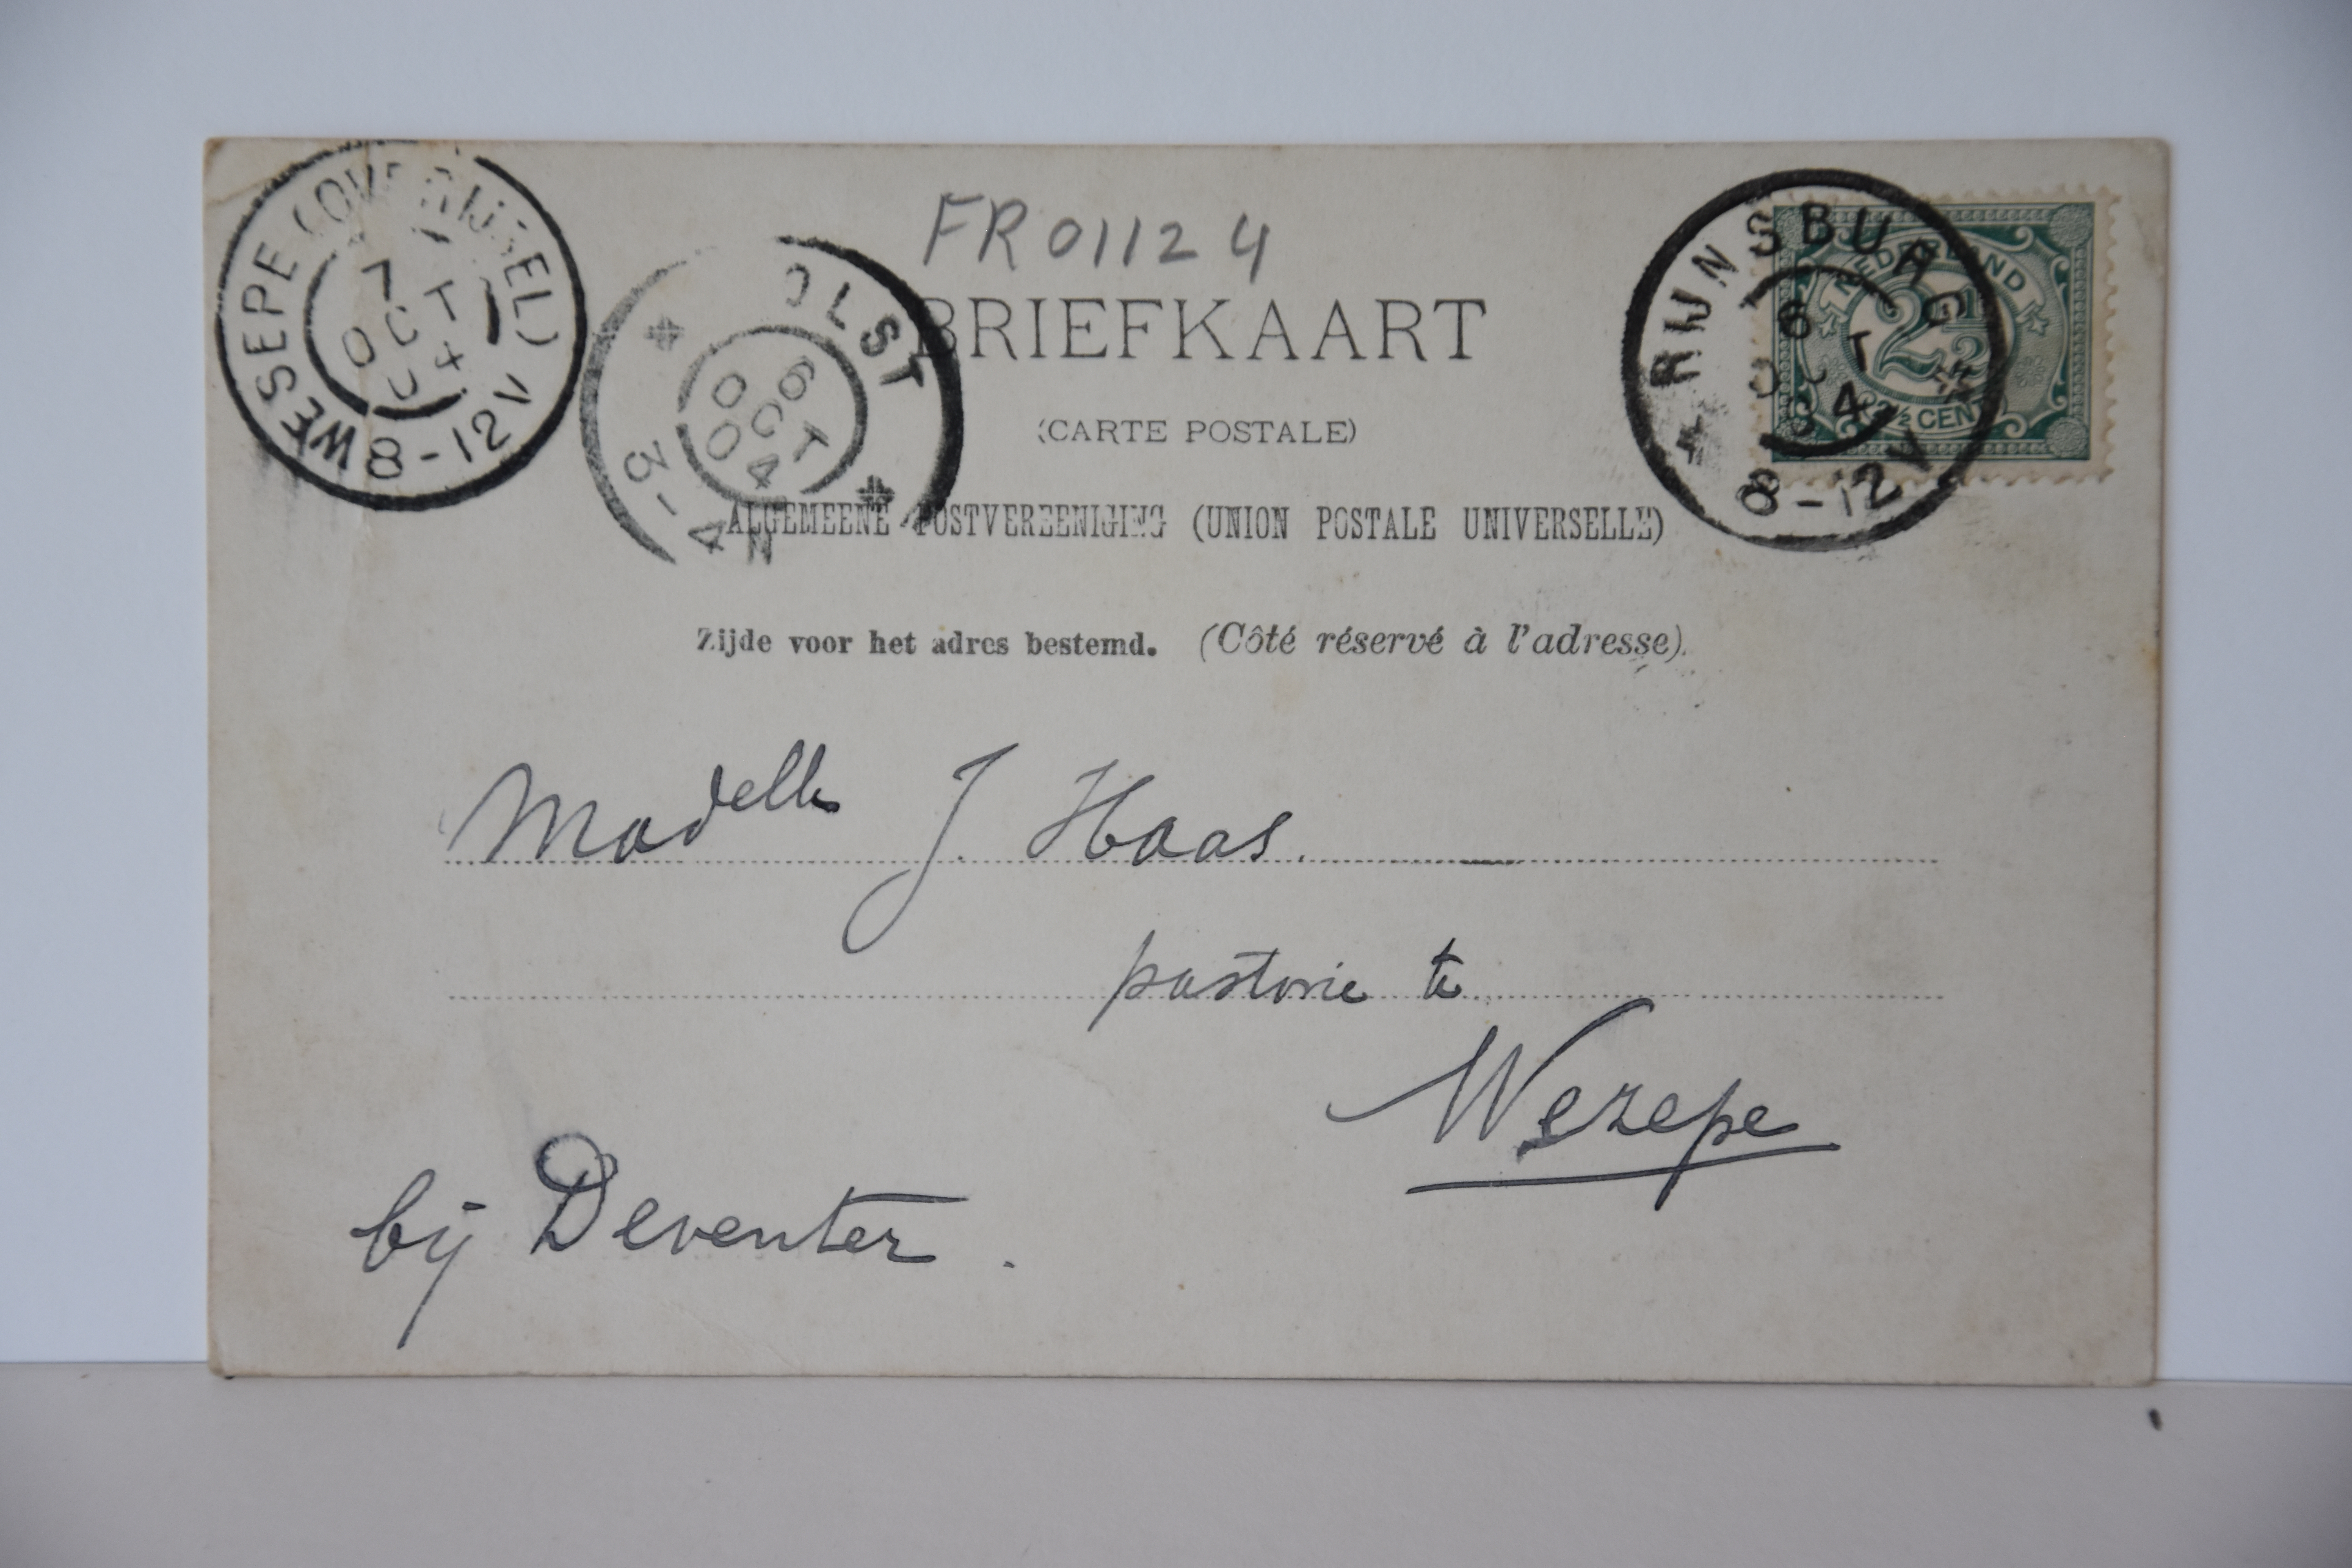 FR 01124
WESEPE (OVERIJSEL)
7
OCT
04
8-12V
OLST
6
OCT
04
3-4N
RIJNSBURG
6
OCT
04
8-12V
NEDERLAND
2½
2½ CENT
BRIEFKAART
(CARTE POSTALE)
ALGEMEENE POSTVEREENIGING (UNION POSTALE UNIVERSELLE)
Zijde voor het adres bestemd. (Côté réservé à l'adresse).
Madelle J. Haas.
pastorie te
Wezepe
bij Deventer.